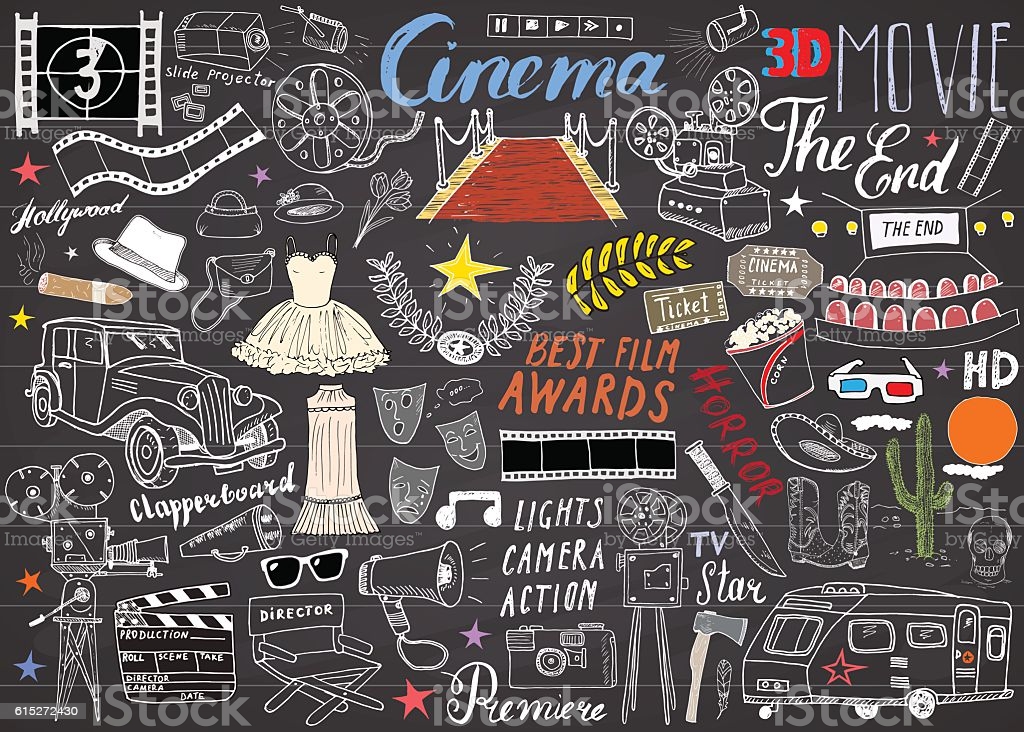 3
Slide Projector
Cinema
3D MOVIE
The End
Hollywood
THE END
CINEMA
TICKET
Ticket
CINEMA
CORN
BEST FILM
AWARDS
HORROR
HD
Clapperboard
LIGHTS
CAMERA
ACTION
TV
Star
DIRECTOR
PRODUCTION
ROLL SCENE TAKE
DIRECTOR
CAMERA
DATE
Premiere
iStock
by Getty Images
615272430